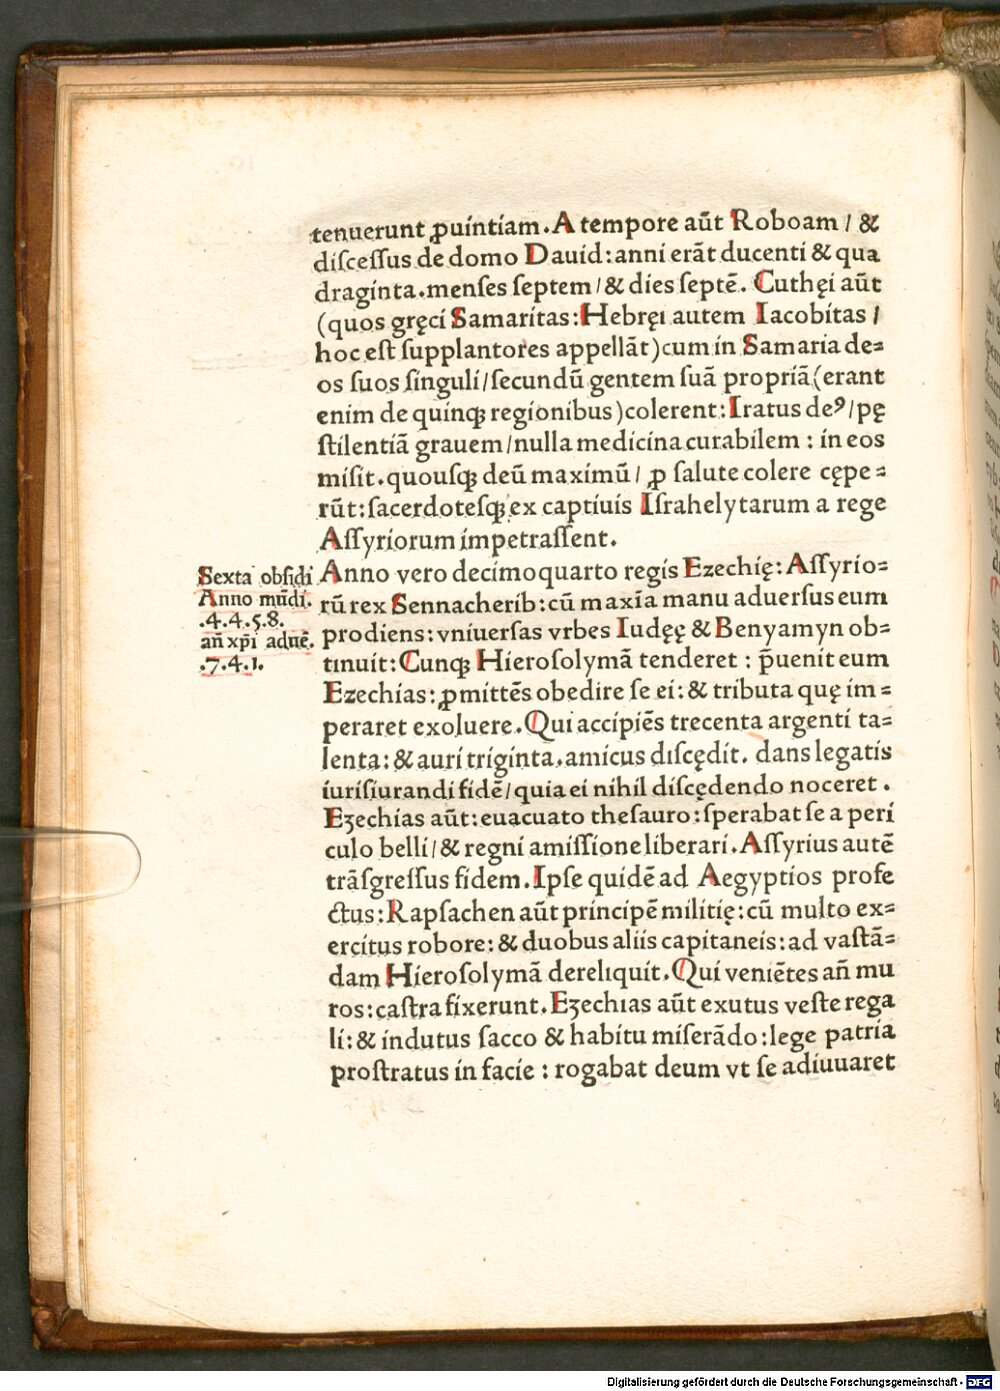 tenuerunt ꝓuintiam. A tempore aũt Roboam / &
diſceſſus de domo Dauid: anni erãt ducenti & qua
draginta. menſes ſeptem / & dies ſeptẽ. Cuthęi aũt
(quos gręci Samaritas: Hebręi autem Iacobitas /
hoc eſt ſupplantores appellãt) cum in Samaria de=
os ſuos ſinguli / ſecundũ gentem ſuã propriã (erant
enim de quinqꝫ regionibus) colerent: Iratus deꝰ / pę
ſtilentiã grauem / nulla medicina curabilem : in eos
miſit. quouſqꝫ deũ maximũ / ꝓ ſalute colere cępe =
rũt: ſacerdoteſqꝫ ex captiuis Iſrahelytarum a rege
Aſſyriorum impetraſſent.
Sexta obſidi
Anno mũdi.
.4.4.5.8.
añ xp̃i aduẽ.
.7.4.1.
Anno vero decimoquarto regis Ezechię: Aſſyrio=
rũ rex Sennacherib: cũ maxĩa manu aduerſus eum
prodiens: vniuerſas vrbes Iudęę & Benyamyn ob=
tinuit: Cunqꝫ Hieroſolymã tenderet : p̃uenit eum
Ezechias: ꝓmittẽs obedire ſe ei: & tributa quę im =
peraret exoluere. Qui accipiẽs trecenta argenti ta=
lenta: & auri triginta, amicus diſcędit. dans legatis
iuriſiurandi fidẽ / quia ei nihil diſcędendo noceret .
Eȝechias aũt: euacuato theſauro: ſperabat ſe a peri
culo belli / & regni amiſſione liberari. Aſſyrius autẽ
trãſgreſſus fidem. Ipſe quidẽ ad Aegyptios profe
ctus: Rapſachen aũt principẽ militię: cũ multo ex=
ercitus robore: & duobus aliis capitaneis: ad vaſtã=
dam Hieroſolymã dereliquit. Qui veniẽtes añ mu
ros: caſtra fixerunt. Eȝechias aũt exutus veſte rega
li: & indutus ſacco & habitu miſerãdo: lege patria
proſtratus in facie : rogabat deum vt ſe adiuuaret
Digitalisierung gefördert durch die Deutsche Forschungsgemeinschaft - DFG